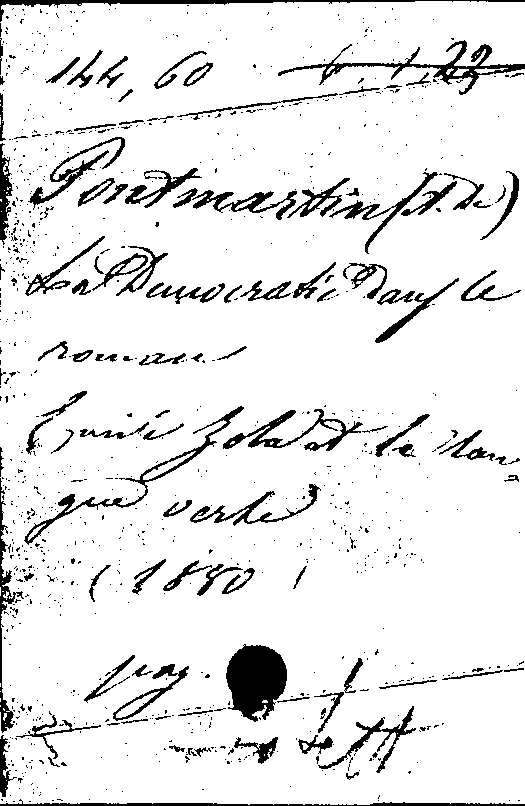 144,60
Pontmartin (A. de)
La Democratie dans le
roman
Emile Zola et la lan-
gue verte
(1880)
pag.
Lett.